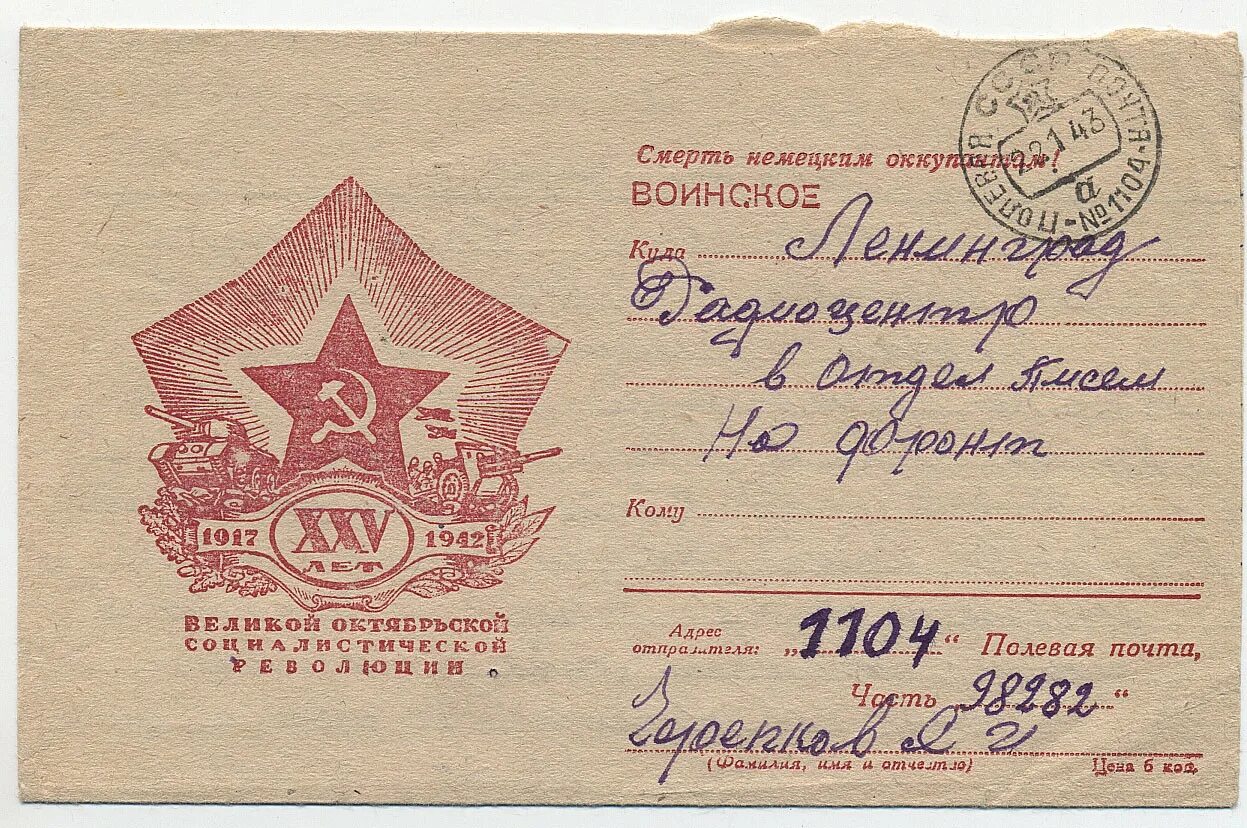 ПОЛЕВАЯ СССР ПОЧТА
22 1 43
а
№1104
Смерть немецким оккупантам!
ВОИНСКОЕ
Куда Ленинград
Радиоцентр
в отдел Писем
На фронт
Кому
1917 XXV 1942
ЛЕТ
ВЕЛИКОЙ ОКТЯБРЬСКОЙ
СОЦИАЛИСТИЧЕСКОЙ
РЕВОЛЮЦИИ
Адрес
отправителя: „1104“ Полевая почта,
Часть „98282“
Черепков Я И
(Фамилия, имя и отчество)
Цена 6 коп.